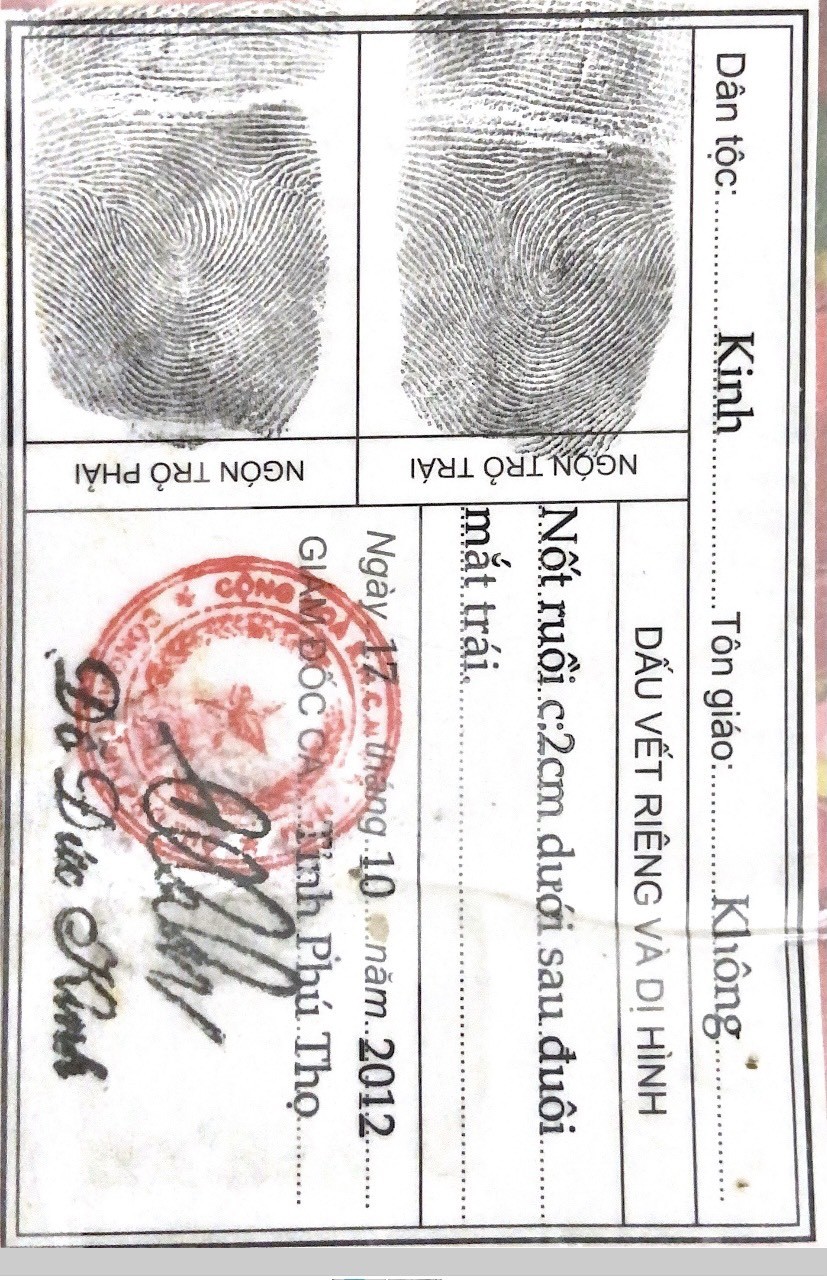 Dân tộc: Kinh Tôn giáo: Không
NGÓN TRỎ TRÁI
NGÓN TRỎ PHẢI
DẤU VẾT RIÊNG VÀ DỊ HÌNH
Nốt ruồi c:2cm dưới sau đuôi
mắt trái.
Ngày 17 tháng 10 năm 2012
GIÁM ĐỐC CA Tỉnh Phú Thọ
CỘNG
Đỗ Đức Kinh